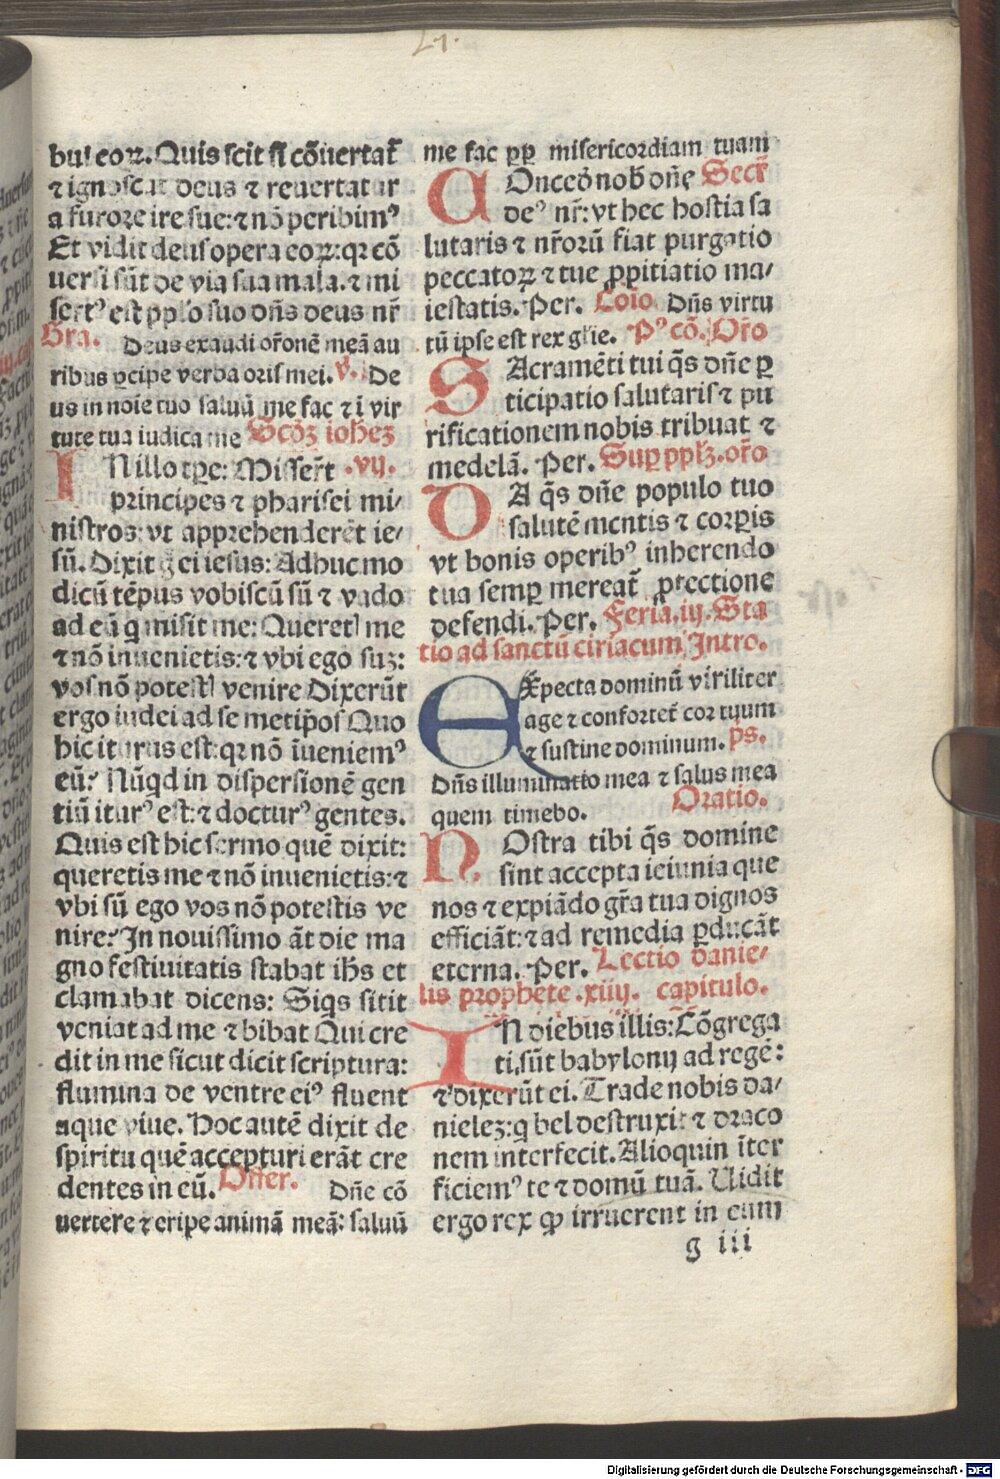 bus eoꝝ. Quis scit si cõuertat̃
⁊ ignoscat deus ⁊ reuertatur
a furore ire sue: ⁊ nõ peribimꝰ
Et vidit deus opera eoꝝ: qꝛ cõ
uersi sũt de via sua mala. ⁊ mi
sertꝰ est pplo suo dñs deus nr̃
Gra. Deus exaudi or̃onẽ meã au
ribus ꝑcipe verba oris mei. v̾. De
us in noie tuo saluũ me fac ⁊ ĩ vir
tute tua iudica me Scd̃ȝ iohẽȝ
IN illo tꝑe: Misser̃t .vij.
principes ⁊ pharisei mi/
nistros: vt apprehenderẽt ie/
sũ. Dixit g̊ ei iesus: Adhuc mo
dicũ tẽpus vobiscũ sũ ⁊ vado
ad eũ q̇ misit me: Queretꝭ me
⁊ nõ inuenietis: ⁊ vbi ego suȝ:
vos nõ potestꝭ venire Dixerũt
ergo iudei ad semetip̃os Quo
hic iturus est: qꝛ nõ ĩueniemꝰ
eũ? Nũqd in dispersionẽ gen
tiũ iturꝰ est: ⁊ docturꝰ gentes.
Quis est hic sermo quẽ dixit:
queretis me ⁊ nõ inuenietis: ⁊
vbi sũ ego vos nõ potestis ve
nire? In nouissimo ãt die ma
gno festiuitatis stabat ih̃s et
clamabat dicens: Siq̇s sitit
veniat ad me ⁊ bibat Qui cre
dit in me sicut dicit scriptura:
flumina de ventre eiꝰ fluent
aque viue. Hoc autẽ dixit de
spiritu quẽ accepturi erãt cre
dentes in eũ. Offer. Dñe cõ
uertere ⁊ eripe animã meã: saluũ
me fac ꝓpꝑ misericordiam tuam
COnced̃ nob̃ dñe Secr̃
deꝰ nr̃: vt hec hostia sa
lutaris ⁊ nr̃orũ fiat purgatio
peccatoꝝ ⁊ tue ꝓpitiatio ma/
iestatis. Per. Cõio. Dñs virtu
tũ ipse est rex glie. Pꝰ cõ. Or̃o
SAcramẽti tui q̃s dñe ꝑ
ticipatio salutaris ⁊ pu
rificationem nobis tribuat ⁊
medelã. Per. Suꝑ pplȝ. or̃o
DA q̃s dñe populo tuo
salutẽ mentis ⁊ corꝑis
vt bonis operibꝰ inherendo
tua semꝑ mereat̃ ꝓtectione
defendi. Per. Feria. iij. Sta
tio ad sanctũ ciriacum. Intro.
EXpecta dominũ viriliter
age ⁊ confortet̃ cor tuum
⁊ sustine dominum. ps.
Dñs illuminatio mea ⁊ salus mea
quem timebo. Oratio.
NOstra tibi q̃s domine
sint accepta ieiunia que
nos ⁊ expiãdo gr̃a tua dignos
efficiãt: ⁊ ad remedia ꝑducãt
eterna. Per. Lectio danie/
lis prophete .xiiij. capitulo.
IN diebus illis: Cõgrega
ti sũt babylonij ad regẽ:
⁊ dixerũt ei. Trade nobis da/
nieleȝ: q̇ bel destruxit ⁊ draco
nem interfecit. Alioquin ĩter
ficiemꝰ te ⁊ domũ tuã. Uidit
ergo rex ꝙ irruerent in eum
g iii
Digitalisierung gefördert durch die Deutsche Forschungsgemeinschaft - DFG